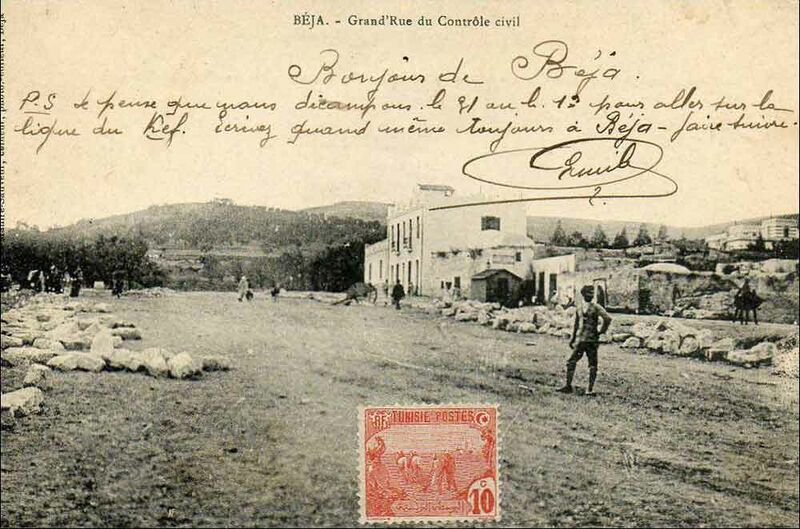 BÉJA. - Grand'Rue du Contrôle civil
Bonjour de Béja.
P.S Je pense que nous décampons le 21 au h. 1º pour aller sur la
ligne du Kef. Ecrivez quand même toujours à Béja - faire suivre.
Emile
TUNISIE POSTES
RF
10
c